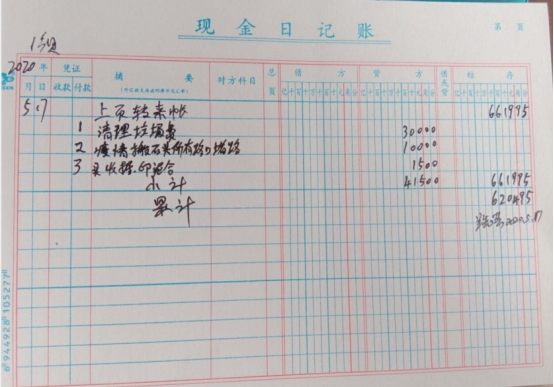 现金日记账
第 页
1号
2020 年 凭证 摘要 对方科目 总页 借方 贷方 借或贷 结存
月 日 收款 付款 亿千百十万千百十元角分 亿千百十万千百十元角分 亿千百十万千百十元角分
5.7 上页转来帐 661995
1 清理垃圾费 30000
2 疫情搬石头所有路口堵路 10000
3 买收据.印泥合 1500
小计 41500 661995
累计 620495
6944928105277